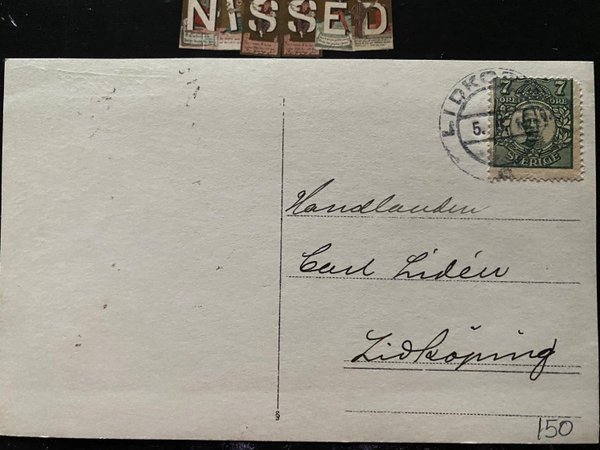 NISSED
LIDKÖ
5.
7 7
ÖRE ÖRE
SVERIGE
Handlanden
Carl Lidén
Lidköping
150